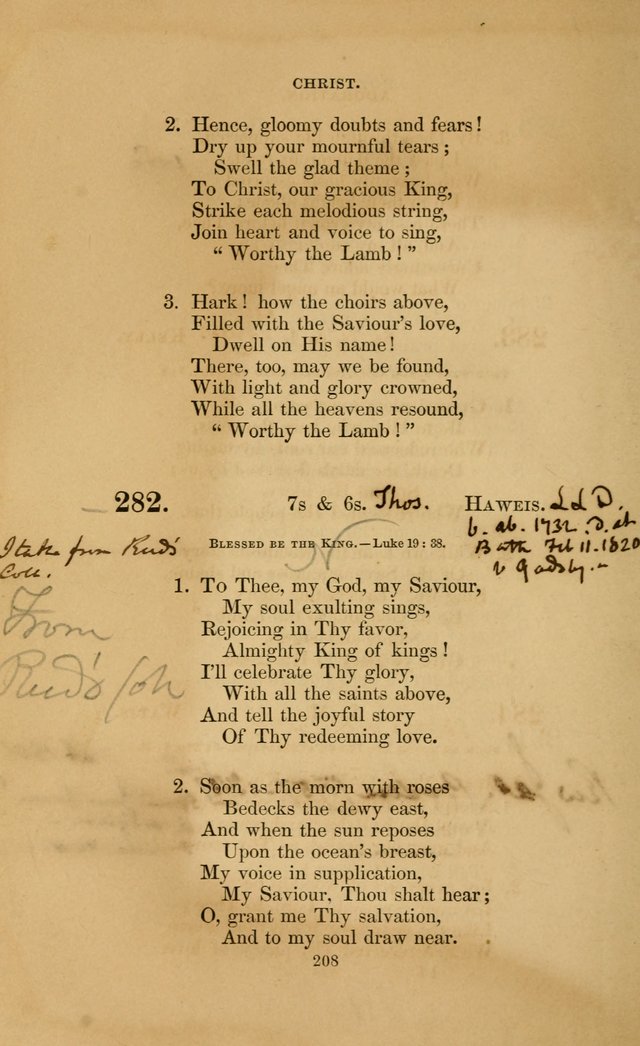 CHRIST.
2. Hence, gloomy doubts and fears!
Dry up your mournful tears;
Swell the glad theme;
To Christ, our gracious King,
Strike each melodious string,
Join heart and voice to sing,
“Worthy the Lamb!”
3. Hark! how the choirs above,
Filled with the Saviour's love,
Dwell on His name!
There, too, may we be found,
With light and glory crowned,
While all the heavens resound,
“Worthy the Lamb!”
282. 7s & 6s. Thos. HAWEIS. LLD.
b. ab. 1732. D. at
Bath Feb 11. 1820
v Gadsby.-
BLESSED BE THE KING.—Luke 19: 38.
I take from Rud's
Coll.
From
Rud's Coll
1. To Thee, my God, my Saviour,
My soul exulting sings,
Rejoicing in Thy favor,
Almighty King of kings!
I'll celebrate Thy glory,
With all the saints above,
And tell the joyful story
Of Thy redeeming love.
2. Soon as the morn with roses
Bedecks the dewy east,
And when the sun reposes
Upon the ocean's breast,
My voice in supplication,
My Saviour, Thou shalt hear;
O, grant me Thy salvation,
And to my soul draw near.
208